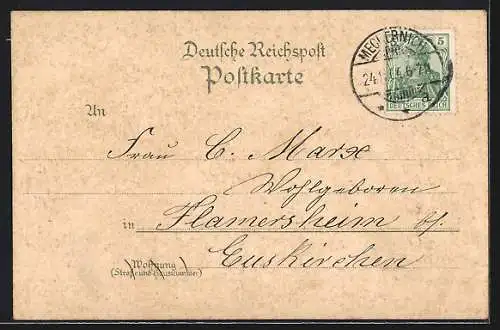 Deutsche Reichspost
Postkarte
MECHERNICH
5
24.
6-7N.
a
DEUTSCHES REICH
An
Frau C. Marx
Wohlgeboren
in Flamersheim b/.
Euskirchen
Wohnung
(Straße und Hausnummer)